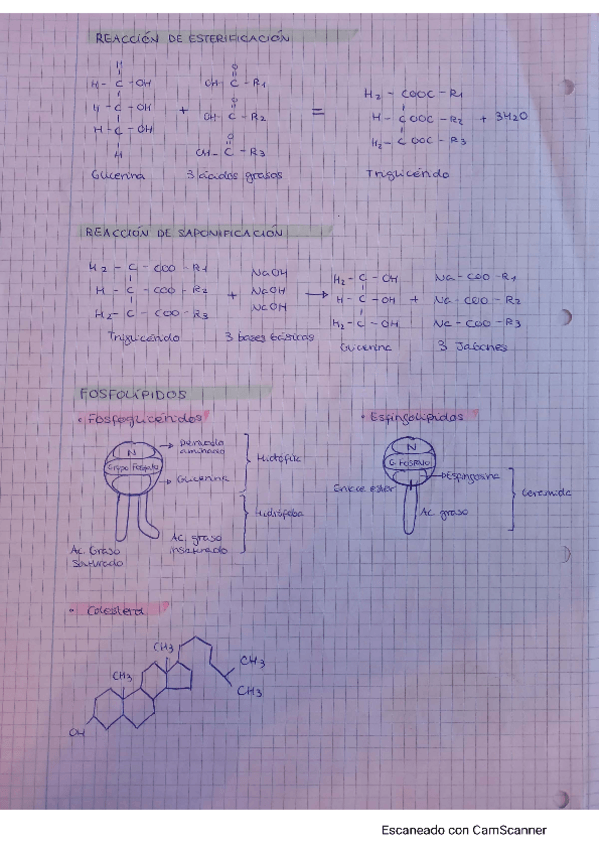 REACCIÓN DE ESTERIFICACIÓN
H
O
H - C - OH
OH - C - R1
H2 - COOC - R1
O
H - C - OH + OH - C - R2 = H - COOC - R2 + 3H2O
O
H - C - OH
OH - C - R3
H2 - COOC - R3
H
Glicerina 3 ácidos grasos Triglicérido
REACCIÓN DE SAPONIFICACIÓN
H2 - C - COO - R1 NaOH H2 - C - OH Na - COO - R1
H - C - COO - R2 + NaOH → H - C - OH + Na - COO - R2
H2 - C - COO - R3 NaOH H2 - C - OH Na - COO - R3
Triglicérido 3 bases básicas Glicerina 3 Jabones
FOSFOLÍPIDOS
• Fosfoglicéridos
• Esfingolípidos
N → Derivado aminado
Grupo Fosfato
→ Glicerina
Hidrófila
Hidrófoba
Ac. Graso saturado
Ac. graso insaturado
N
G. FOSFATO
→ Esfingosina
Enlace ester
Ac graso
Ceramida
• Colesterol
CH3
CH3
CH3
CH3
OH
Escaneado con CamScanner